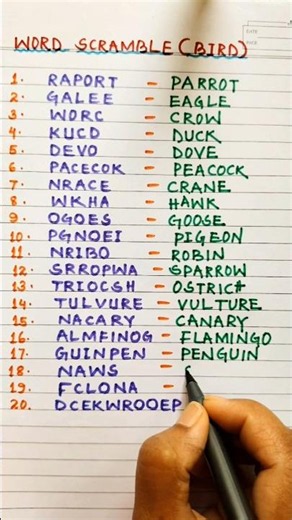 WORD SCRAMBLE (BIRD)
1. RAPORT - PARROT
2. GALEE - EAGLE
3. WORC - CROW
4. KUCD - DUCK
5. DEVO - DOVE
6. PACECOK - PEACOCK
7. NRACE - CRANE
8. WKHA - HAWK
9. OGOES - GOOSE
10. PGNOEI - PIGEON
11. NRIBO - ROBIN
12. SRROPWA - SPARROW
13. TRIOCSH - OSTRICH
14. TULVURE - VULTURE
15. NACARY - CANARY
16. ALMFINOG - FLAMINGO
17. GUINPEN - PENGUIN
18. NAWS - S
19. FCLONA -
20. DCEKWROOEP